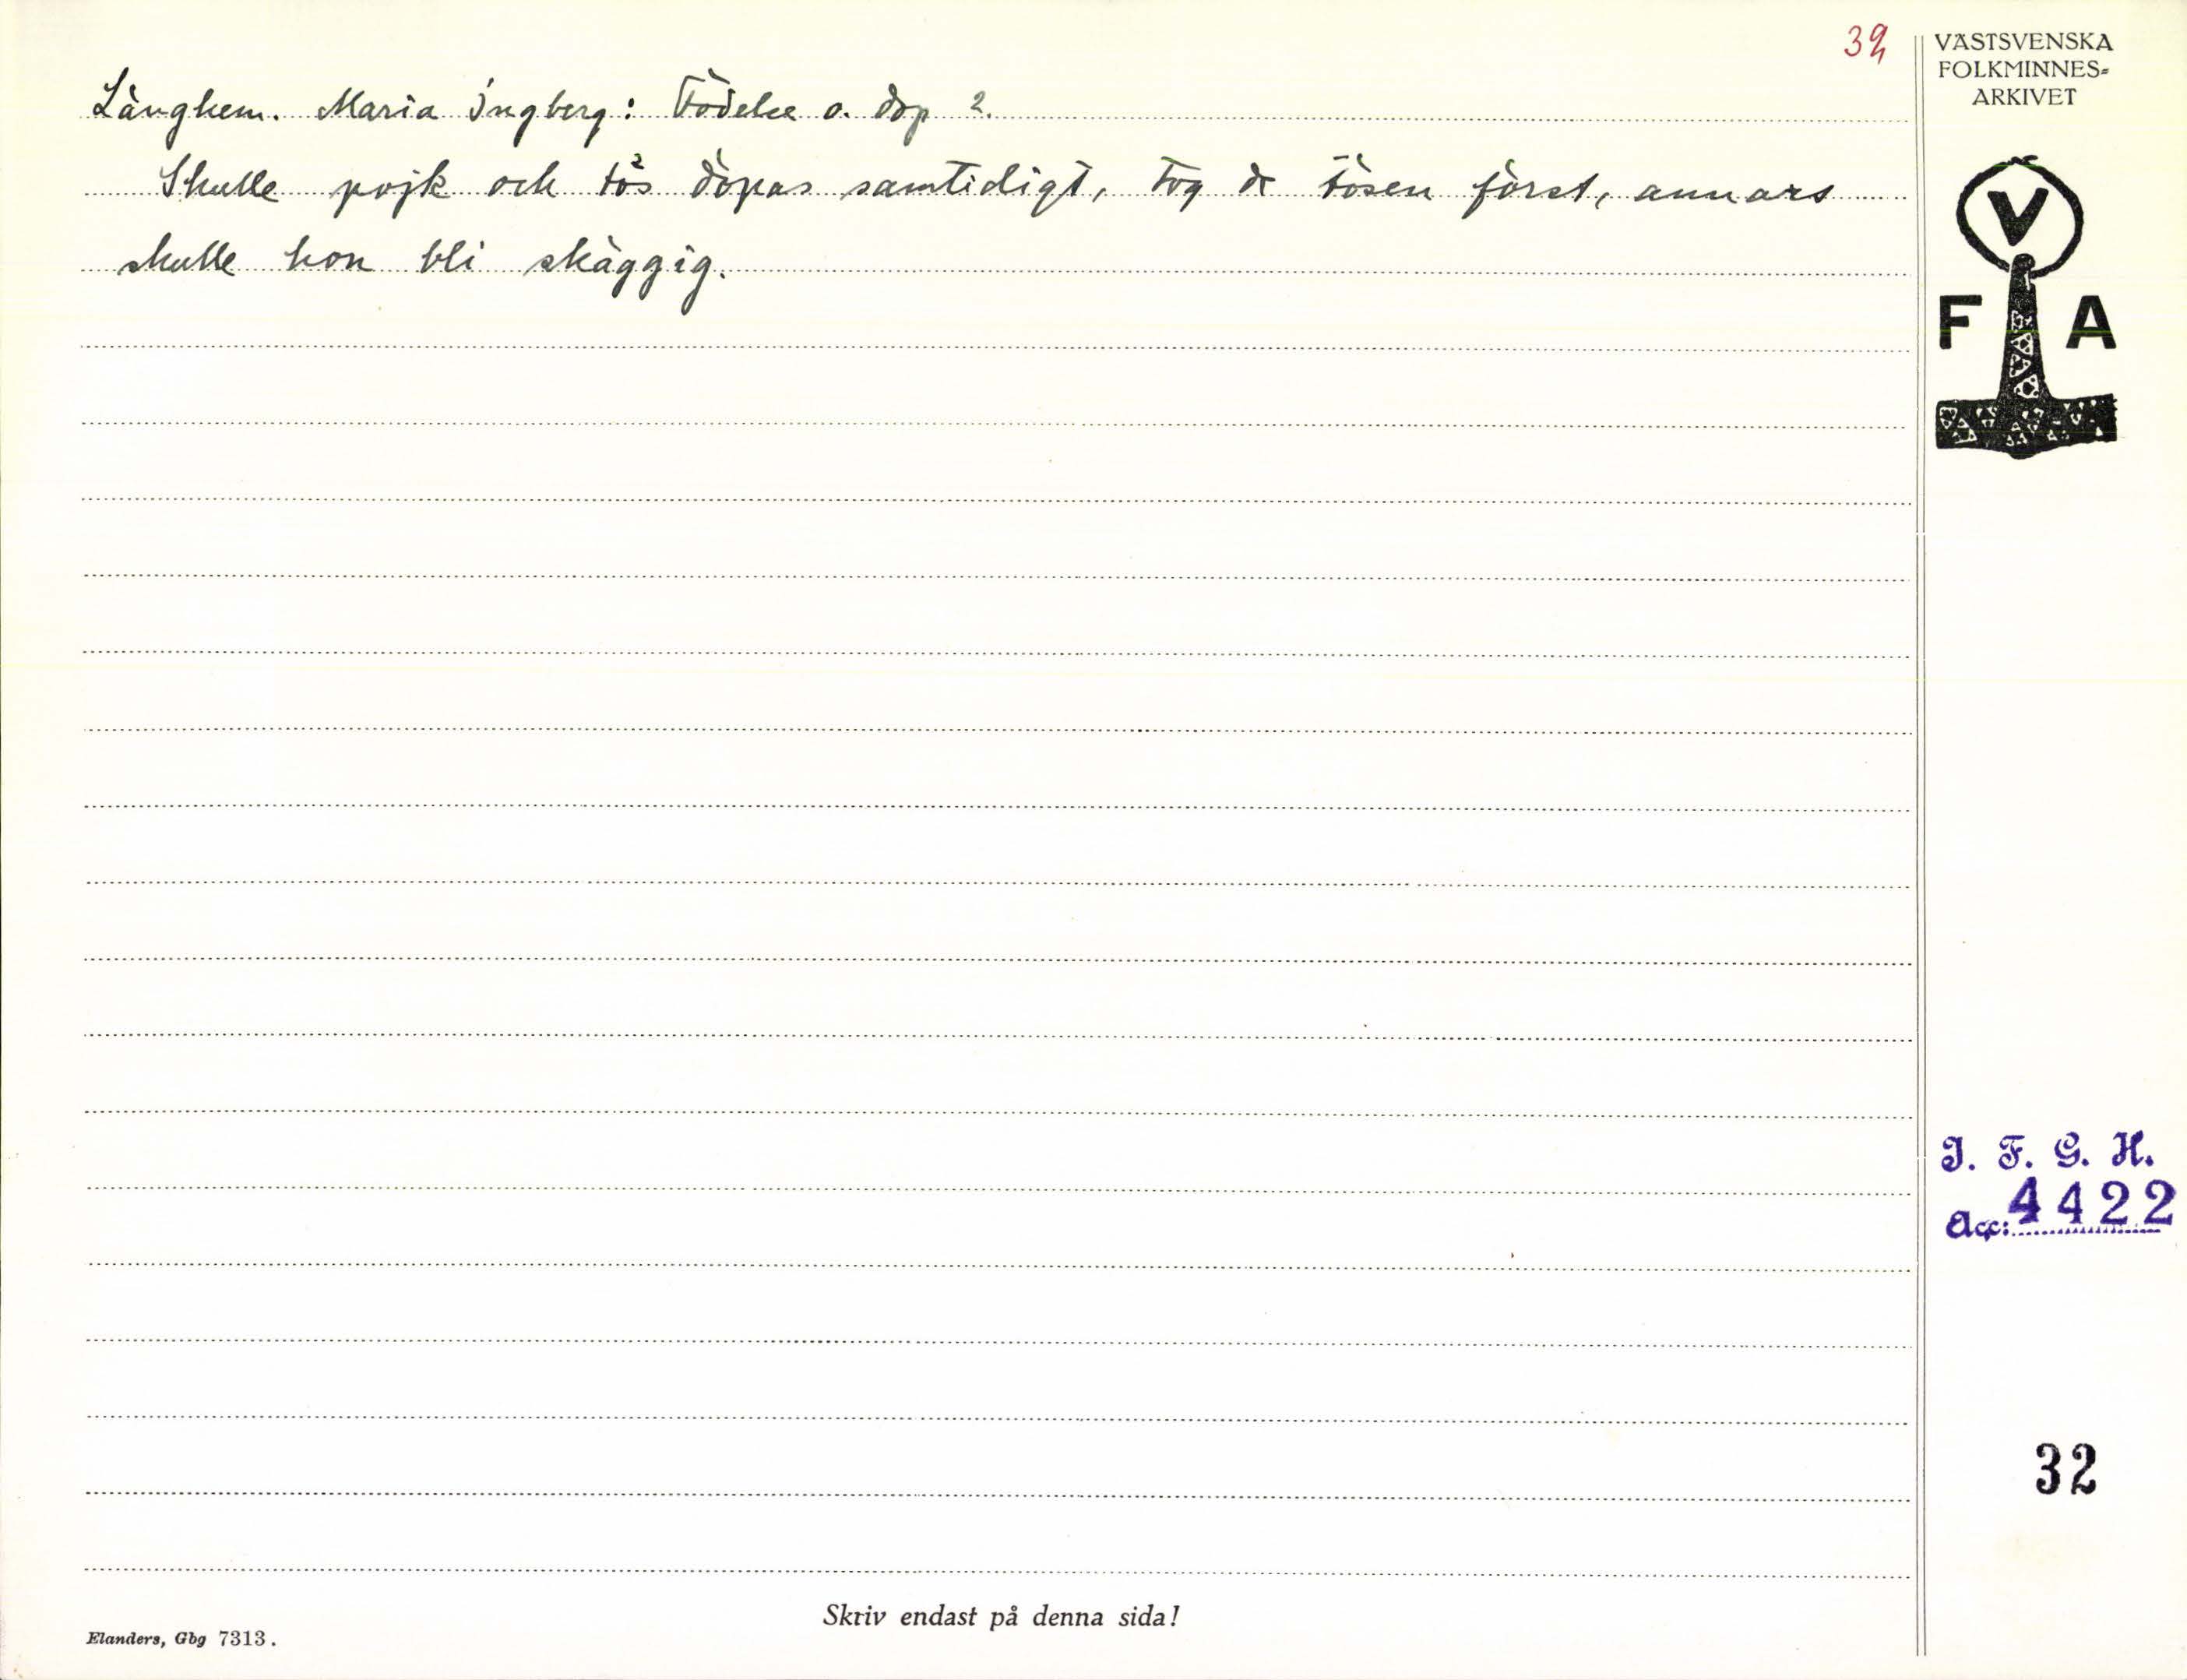 39
VÄSTSVENSKA
FOLKMINNES-
ARKIVET
Långhem. Maria Ingberg: Födelse o. dop 2.
Skulle pojk och tös döpas samtidigt, tog de tösen först, annars
skulle hon bli skäggig.
V
F A
I. F. G. H.
Acc: 4422
32
Skriv endast på denna sida!
Elanders, Gbg 7313.